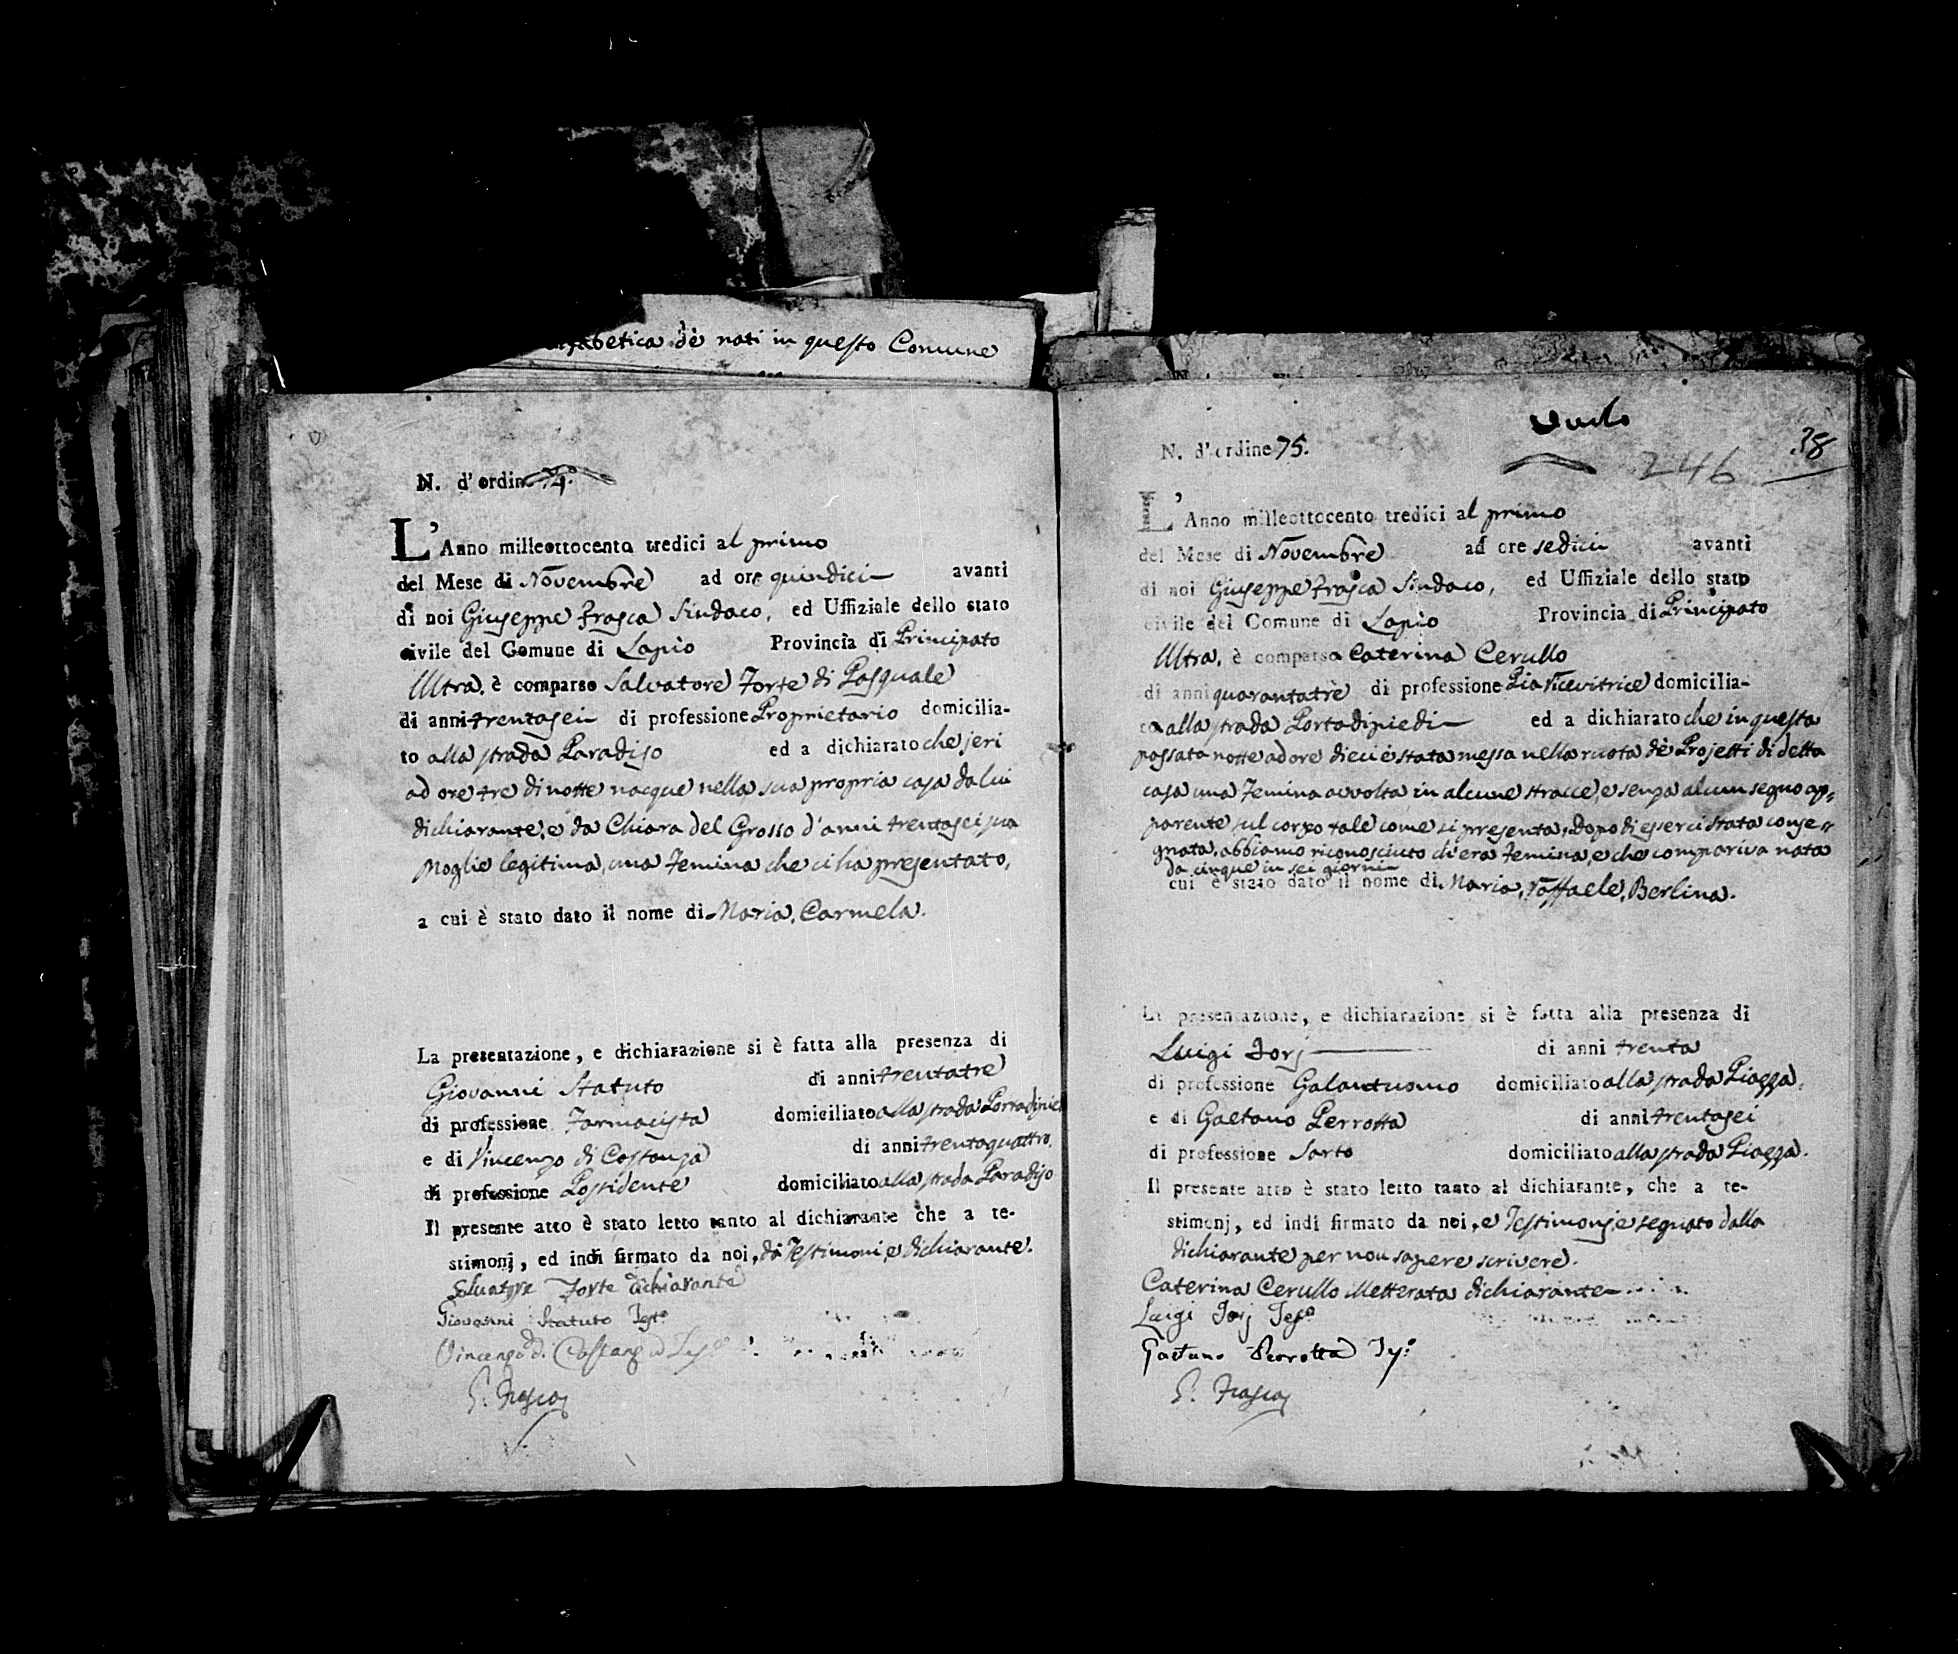 abetica dè nati in questo Comune
N. d'ordine 74.
L'Anno milleottocento tredici al primo
del Mese di Novembre ad ore quindici avanti
di noi Giuseppe Frasca Sindaco, ed Uffiziale dello stato
civile del Comune di Lapio Provincia di Principato
Ultra, è comparso Salvatore Forte di Pasquale
di anni trentasei di professione Proprietario domicilia-
to alla strada Paradiso ed a dichiarato che jeri
ad ore tre di notte nacque nella sua propria casa da lui
dichiarante, e da Chiara del Grosso d'anni trentasei sua
Moglie legitima, una Femina che ci ha presentato,
a cui è stato dato il nome di Maria, Carmela.
La presentazione, e dichiarazione si è fatta alla presenza di
Giovanni Statuto di anni trentatre
di professione Farmacista domiciliato alla strada Portadipie
e di Vincenzo di Costanza di anni trentaquattro
di professione Possidente domiciliato alla strada Paradiso
Il presente atto è stato letto tanto al dichiarante che a te-
stimonj, ed indi firmato da noi, da Testimonj, e dichiarante.
Salvatore Forte dichiarante
Giovanni Statuto Testo
Vincenzo di Costanza
G. Frasca
38
246
N. d'ordine 75.
L'Anno milleottocento tredici al primo
del Mese di Novembre ad ore sedici avanti
di noi Giuseppe Frasca Sindaco, ed Uffiziale dello stato
civile del Comune di Lapio Provincia di Principato
Ultra, è comparsa Caterina Cerullo
di anni quarantatrè di professione Pia ricevitrice domicilia-
ta alla strada Portadipiedi ed a dichiarato che in questa
passata notte ad ore dieci è stata messa nella ruota dè Projetti di detta
casa una Femina avvolta in alcune stracce, e senza alcun segno ap=
parente sul corpo tale come si presenta, Dopo di esserci stata conse=
gnata, abbiamo riconosciuto ch'era Femina, e che compariva nata
da cinque in sei giorni
cui è stato dato il nome di Maria, Raffaele, Berlina.
La presentazione, e dichiarazione si è fatta alla presenza di
Luigi Forj di anni trenta
di professione Galantuomo domiciliato alla strada Piazza,
e di Gaetano Perrotta di anni trentasei
di professione Sarto domiciliato alla strada Piazza.
Il presente atto è stato letto tanto al dichiarante, che a te-
stimonj, ed indi firmato da noi, e Testimonj e segnato dalla
dichiarante per non sapere scrivere.
Caterina Cerullo Metterata dichiarante
Luigi Forj Teso
Gaetano Perrotta
G. Frasca